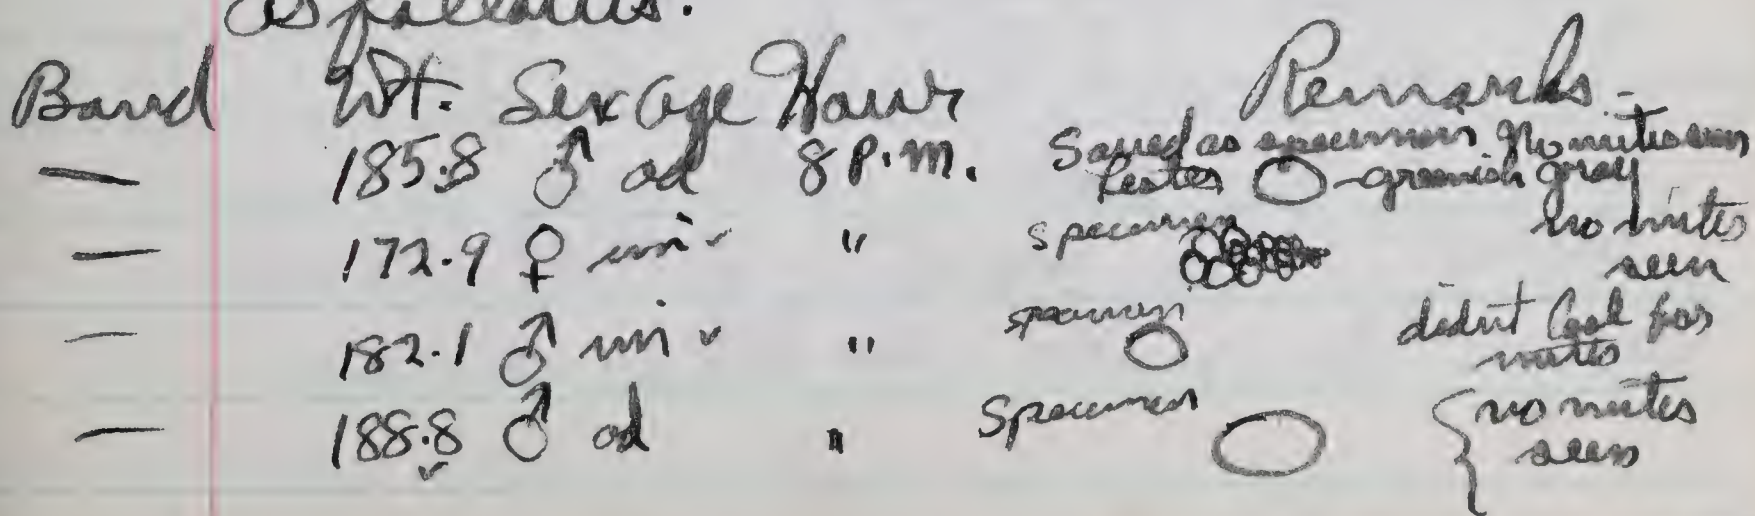 as follows:
Band Wt. Sex Age Hour Remarks -
— 185.8 ♂ ad 8 P.M. Saved as specimen No mites seen
testes - greenish gray
— 172.9 ♀ im ✓ " specimen no mites
seen
— 182.1 ♂ im ✓ " specimen didn't look for
mites
— 188.8 ♂ ad " Specimen { no mites
✓ seen